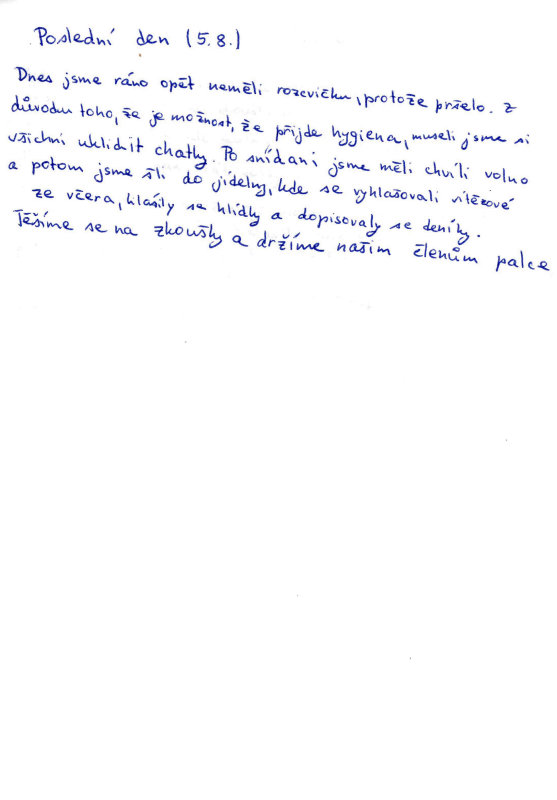 Poslední den (5.8.)
Dnes jsme ráno opět neměli rozcvičku, protože pršelo. Z
důvodu toho, že je možnost, že přijde hygiena, museli jsme si
všichni uklidit chatky. Po snídani jsme měli chvíli volno
a potom jsme šli do jídelny, kde se vyhlašovali vítězové
ze včera, hlásily se hlídky a dopisovaly se deníky.
Těšíme se na zkoušky a držíme našim členům palce